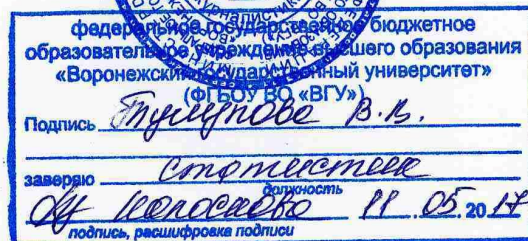 журналистик
федеральное государственное бюджетное
образовательное учреждение высшего образования
«Воронежский государственный университет»
(ФГБОУ ВО «ВГУ»)
Подпись Тулупова В.В.
заверяю
должность
11.05.2017
подпись, расшифровка подписи